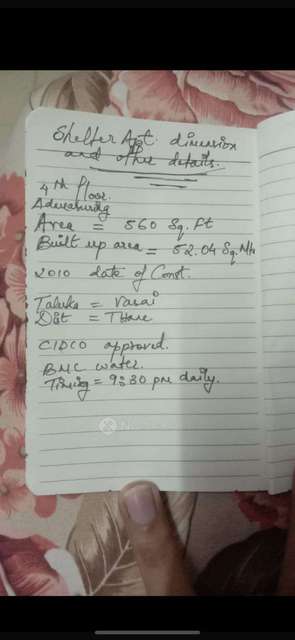 Shelter Apt dimension
and other details.
4th Floor.
Admeasuring
Area = 560 Sq. Ft
Built up area = 52.04 Sq. Mtr
2010 date of Const.
Taluka = Vasai
Dist = Thane
CIDCO approved.
BMC water.
Timing = 9:30 pm daily.